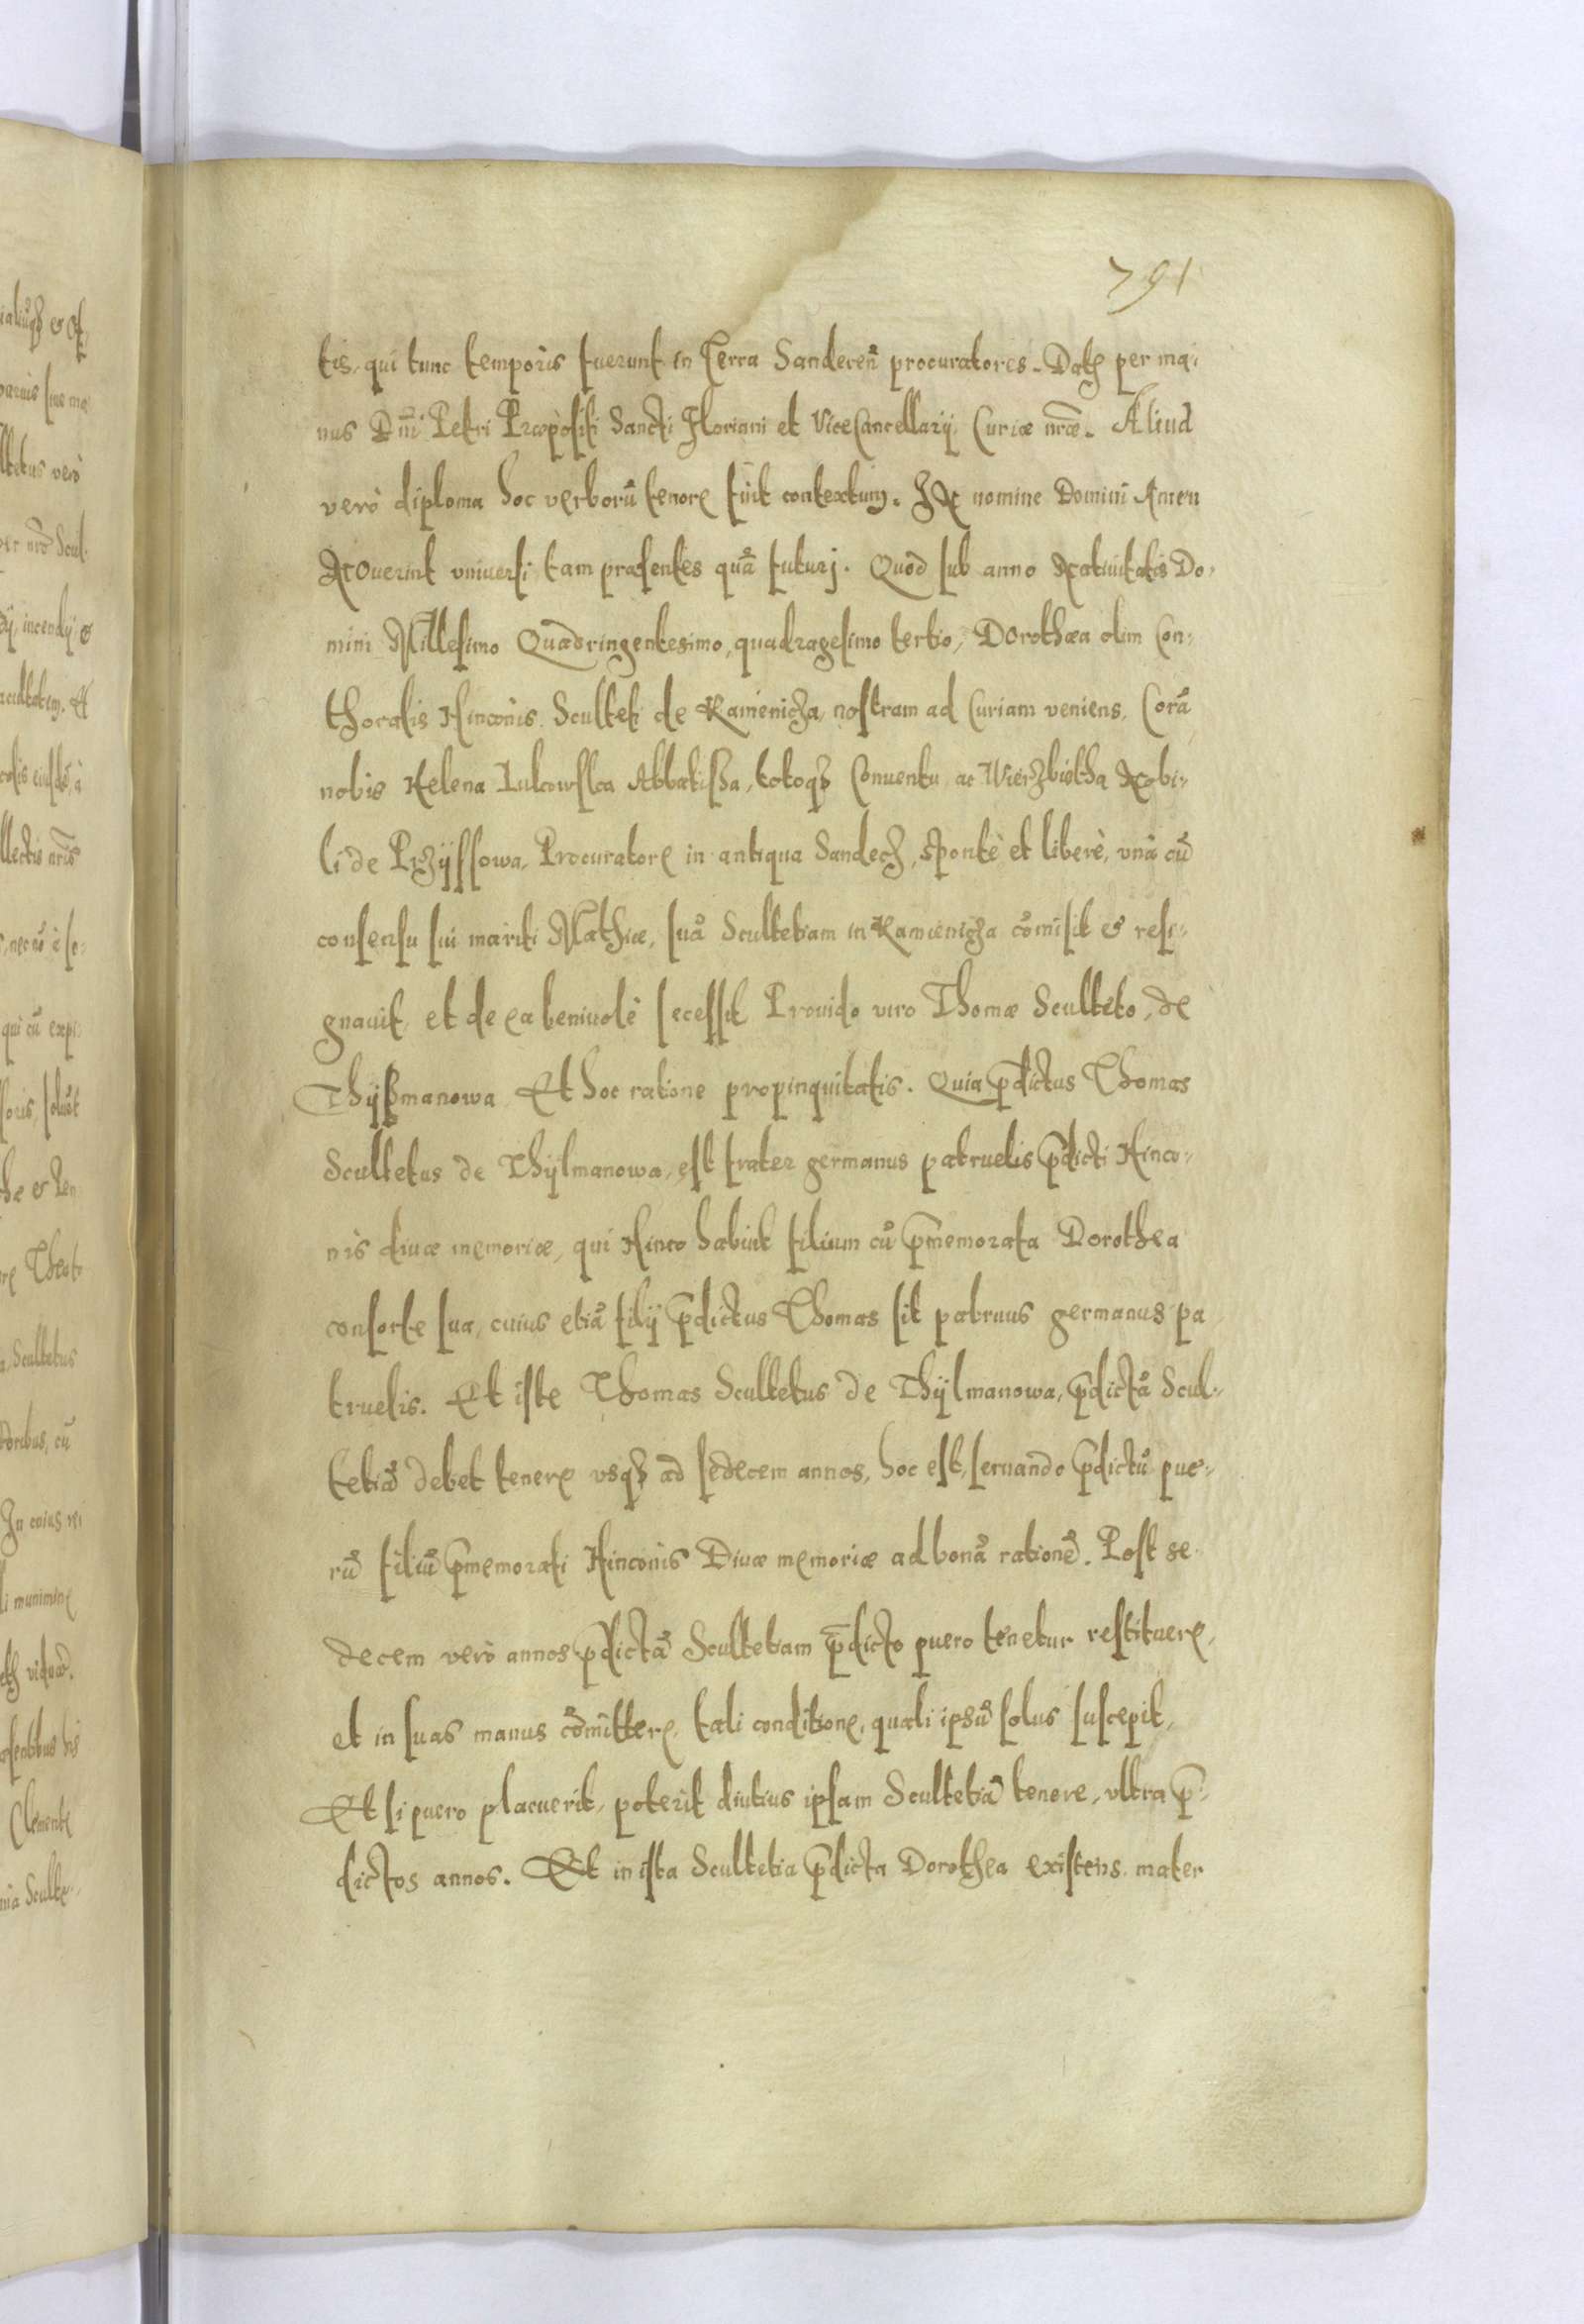 791
tis, qui tunc temporis fuerunt in Terra Sandecen̄ procuratores. Datꝫ per ma-
nus Dn̄i Petri Præpositi Sancti Floriani et ViceCancellarij Curiæ nr̄æ. Aliud
verò diploma hoc verborū tenore fuit contextum. In nomine Domini Amen
Nouerint vniuersi tam præsentes quā futurj. Quod sub anno Natiuitatis Do-
mini Millesimo Quadringentesimo, quadragesimo tertio, Dorothæa olim Con-
thoralis Hinconis Sculteti de Kamienicza, nostram ad Curiam veniens, Corā
nobis Helena Lulcowska Abbatissa, totoqꝫ Conuentu ac Wierzbietha Nobi-
li de Przÿssowa, Procuratore in antiqua Sandecz, spontè et liberè, vnà cū
consensu sui mariti Mathiæ, suā Scultetiam in Kamienicza cōmisit & resi-
gnauit, et de ea beniuolè secessit Prouido viro Thomæ Sculteto, de
Thÿßmanowa Et hoc ratione propinquitatis. Quia p̄dictus Thomas
Scultetus de Thÿlmanowa, est frater germanus patruelis p̄dicti Hinco-
nis diuæ memoriæ, qui Hinco habuit filium cū p̄memorata Dorothea
consorte sua, cuius etiā filij p̄dictus Thomas sit patruus germanus pa
truelis. Et iste Thomas Scultetus de Thÿlmanowa, p̄dictā Scul-
tetiā debet tenere vsqꝫ ad sedecem annos, hoc est, seruando p̄dictū pue-
rū filiū p̄memorati Hinconis Diuæ memoriæ ad bonā rationē. Post se-
decem verò annos p̄dictā Scultetiam p̄dicto puero tenetur restituere,
et in suas manus cōmittere, tali conditione, quali ipsū solus suscepit,
Et si puero placuerit, poterit diutius ipsam Scultetiā tenere, vltra p̄-
dictos annos. Et in ista Scultetia p̄dicta Dorothea existens mater